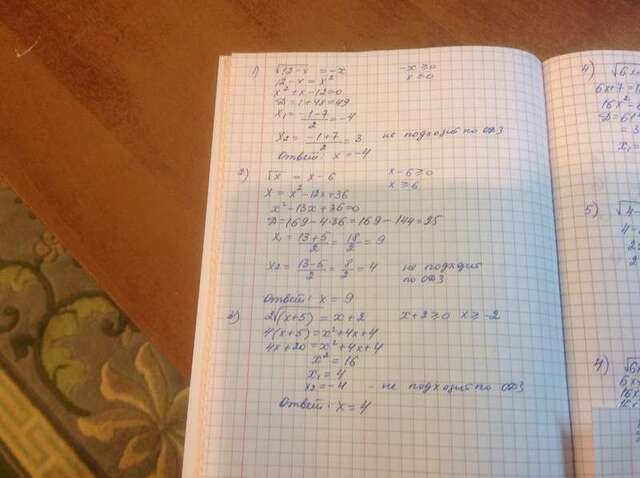 1) √12-x = -x    -x ≥ 0
12-x = x²    x ≥ 0
x²+x-12=0
D = 1+48=49
x₁ = (-1-7)/2 = -4
x₂ = (-1+7)/2 = 3    не подходит по ОДЗ
Ответ: x = -4
2) √x = x-6    x-6 ≥ 0
x = x²-12x+36    x ≥ 6
x²-13x+36=0
D = 169-4·36=169-144=25
x₁ = (13+5)/2 = 18/2 = 9
x₂ = (13-5)/2 = 8/2 = 4    не подходит
по ОДЗ
Ответ: x = 9
3) 2√(x+5) = x+2    x+2 ≥ 0    x ≥ -2
4(x+5)=x²+4x+4
4x+20=x²+4x+4
x² = 16
x₁ = 4
x₂ = -4 - не подходит по ОДЗ
Ответ: x = 4
4) √6x
6x+7=
16x²
D=
x₁ =
5) √4-
4-
4) √6x